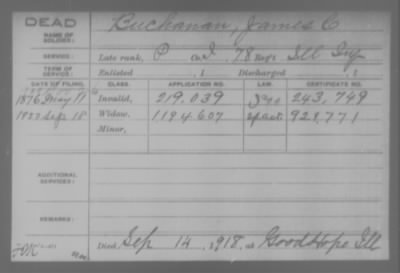 DEAD
NAME OF SOLDIER: Buchanan, James C
SERVICE: Late rank, P Co. I, 78 Reg't Ill Inf
TERM OF SERVICE: Enlisted , 1 Discharged , 1
DATE OF FILING. CLASS. APPLICATION NO. LAW. CERTIFICATE NO.
1876 May 11 Invalid, 219.039 243,749
Sep 18 Widow, 1194.607 921,771
Minor,
ADDITIONAL SERVICES:
REMARKS:
Died Sep 14, 1918, at Good Hope Ill